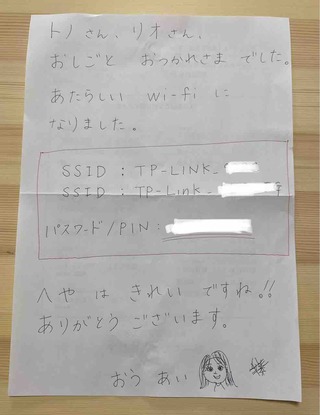 トノさん、リオさん、
おしごと おつかれさま でした。
あたらしい wi-fi に
なりました。
SSID : TP-LINK_
SSID : TP-Link_
パスワード/PIN :
へや は きれい ですね!!
ありがとう ございます。
おう あい